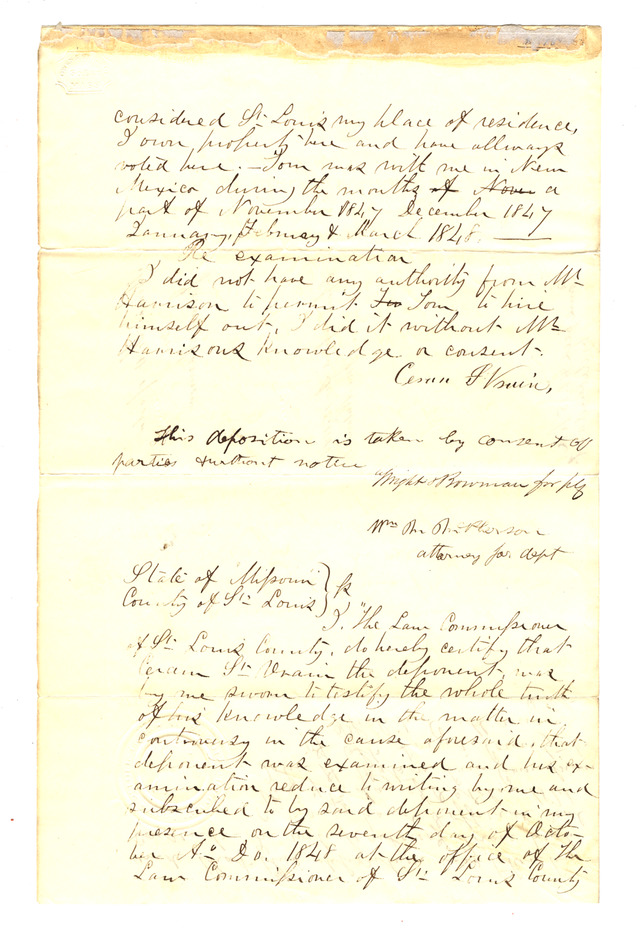 considered St Louis my place of residence,
I own property here and have allways
voted here. — Tom was with me in New
Mexico during the months of Nover a
part of November 1847 December 1847
January, February & March 1848. —
Re examination
I did not have any authority from Mr
Harrison to permit Tom to hire
himself out, I did it without Mr
Harrisons knowledge or consent.
Ceran St Vrain,
This deposition is taken by consent of
parties & without notice
Wright & Bowman for plf
Wm M McPherson
attorney for deft
State of Missouri
County of St Louis } ss
I, "The Law Commissioner
of St Louis County, do hereby certify that
Ceran St Vrain the deponent was
by me sworn to testify the whole truth
of his knowledge in the matter in
controversy in the cause aforesaid, that
deponent was examined and his ex-
amination reduce to writing by me and
subscribed to by said deponent in my
presence on the seventh day of Octo-
ber Ao Do. 1848 at the office of The
Law Commissioner of St Louis County